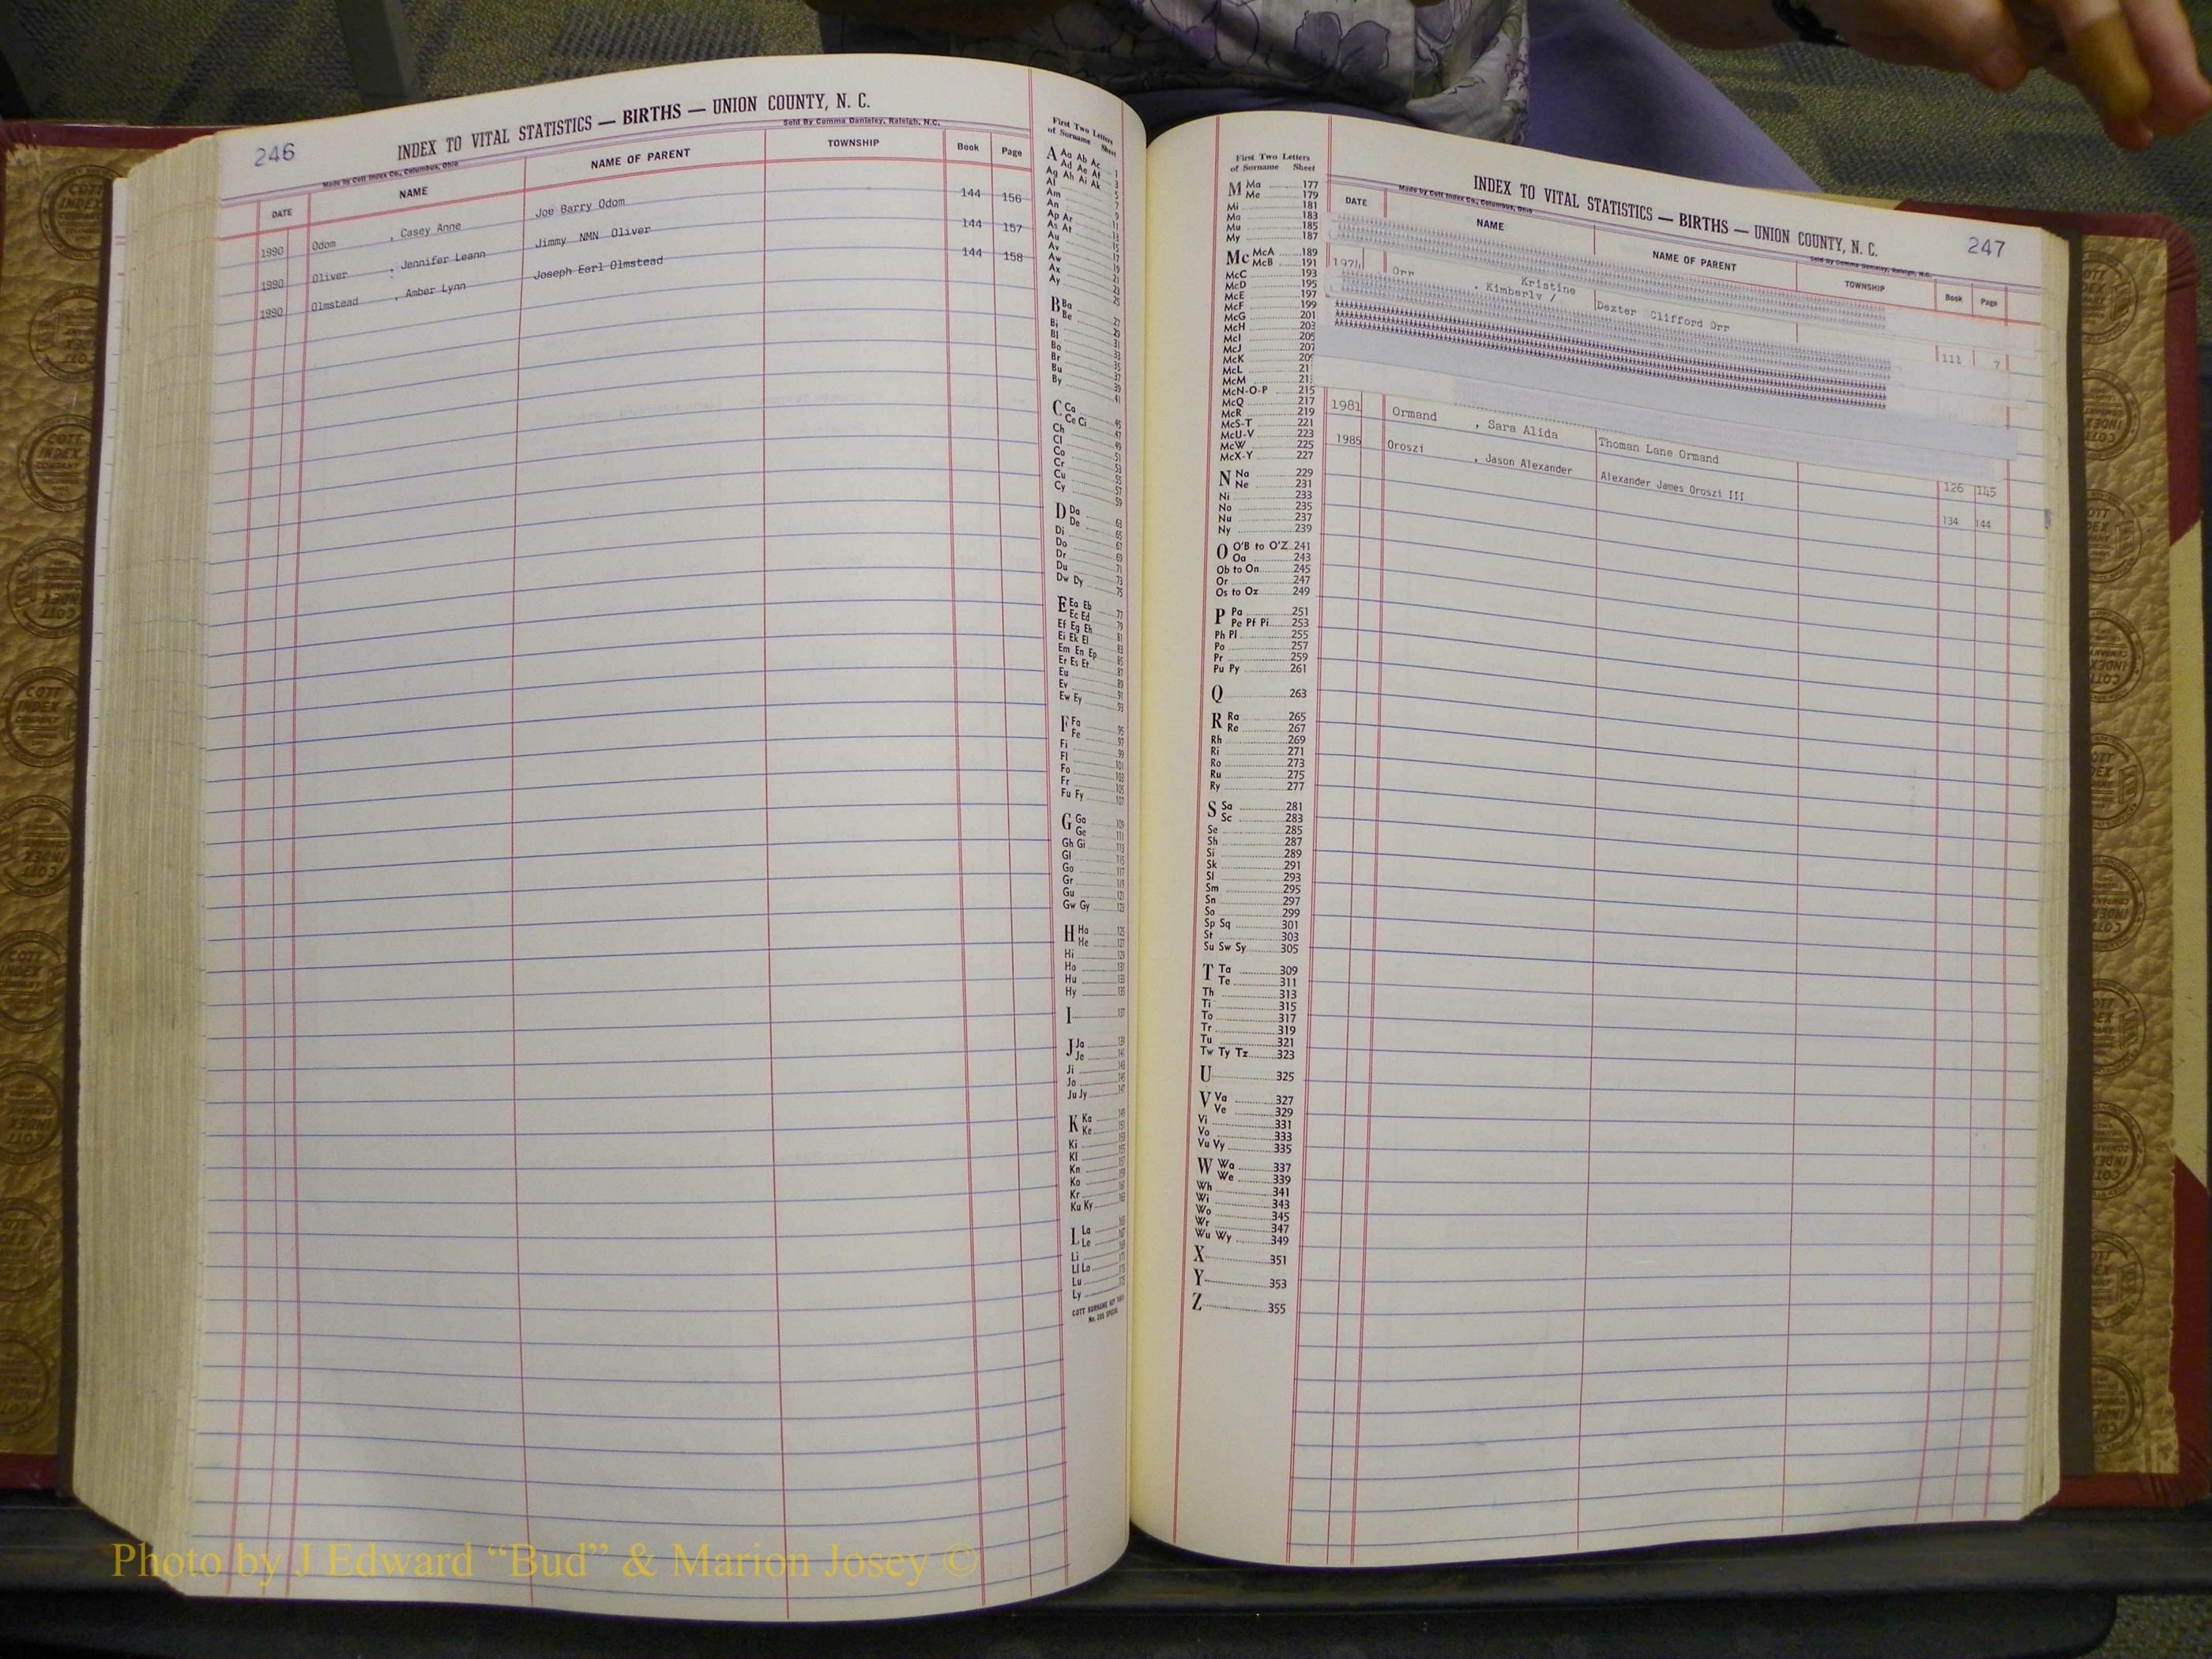 246
INDEX TO VITAL STATISTICS — BIRTHS — UNION COUNTY, N. C.
Made by Cott Index Co., Columbus, Ohio
Sold By Comma Danieley, Raleigh, N.C.
DATE NAME NAME OF PARENT TOWNSHIP Book Page
1990 Odom , Casey Anne Joe Barry Odom 144 156
1990 Oliver , Jennifer Leann Jimmy NMN Oliver 144 157
1990 Olmstead , Amber Lynn Joseph Earl Olmstead 144 158
First Two Letters
of Surname Sheet
A Aa Ab Ac 1
Ad Ae Af 3
Ag Ah Ai Ak 5
Al 7
Am 9
An 11
Ap Ar 13
As At 15
Au 17
Av 19
Aw 21
Ax 23
Ay 25
B Ba 27
Be 29
Bi 31
Bl 33
Bo 35
Br 37
Bu 39
By 41
C Ca 45
Ce Ci 47
Ch 49
Cl 51
Co 53
Cr 55
Cu 57
Cy 59
D Da 63
De 65
Di 67
Do 69
Dr 71
Du 73
Dw Dy 75
E Ea Eb 77
Ec Ed 79
Ef Eg Eh 81
Ei Ek El 83
Em En Ep 85
Er Es Et 87
Eu 89
Ev 91
Ew Ey 93
F Fa 95
Fe 97
Fi 99
Fl 101
Fo 103
Fr 105
Fu Fy 107
G Ga 109
Ge 111
Gh Gi 113
Gl 115
Go 117
Gr 119
Gu 121
Gw Gy 123
H Ha 125
He 127
Hi 129
Ho 131
Hu 133
Hy 135
I 137
J Ja 139
Je 141
Ji 143
Jo 145
Ju Jy 147
K Ka 149
Ke 151
Ki
Kl
Kn
Ko
Kr
Ku Ky
L La
Le
Li
Ll Lo
Lu
Ly
COTT SURNAME KEY TABLE
First Two Letters
of Surname Sheet
M Ma 177
Me 179
Mi 181
Mo 183
Mu 185
My 187
Mc McA 189
McB 191
McC 193
McD 195
McE 197
McF 199
McG 201
McH 203
McI 205
McJ 207
McK
McL
McM
McN-O-P 215
McQ 217
McR 219
McS-T 221
McU-V 223
McW 225
McX-Y 227
N Na 229
Ne 231
Ni 233
No 235
Nu 237
Ny 239
O O'B to O'Z 241
Oa 243
Ob to On 245
Or 247
Os to Oz 249
P Pa 251
Pe Pf Pi 253
Ph Pl 255
Po 257
Pr 259
Pu Py 261
Q 263
R Ra 265
Re 267
Rh 269
Ri 271
Ro 273
Ru 275
Ry 277
S Sa 281
Sc 283
Se 285
Sh 287
Si 289
Sk 291
Sl 293
Sm 295
Sn 297
So 299
Sp Sq 301
St 303
Su Sw Sy 305
T Ta 309
Te 311
Th 313
Ti 315
To 317
Tr 319
Tu 321
Tw Ty Tz 323
U 325
V Va 327
Ve 329
Vi 331
Vo 333
Vu Vy 335
W Wa 337
We 339
Wh 341
Wi 343
Wo 345
Wr 347
Wu Wy 349
X 351
Y 353
Z 355
247
INDEX TO VITAL STATISTICS — BIRTHS — UNION COUNTY, N. C.
Made by Cott Index Co., Columbus, Ohio
Sold By Comma Danieley, Raleigh, N.C.
DATE NAME NAME OF PARENT TOWNSHIP Book Page
Kristine
1974 Orr , Kimberly / Dexter Clifford Orr 111 7
1981 Ormand , Sara Alida Thoman Lane Ormand 126 145
1985 Oroszi , Jason Alexander Alexander James Oroszi III 134 144
Photo by J Edward “Bud” & Marion Josey ©